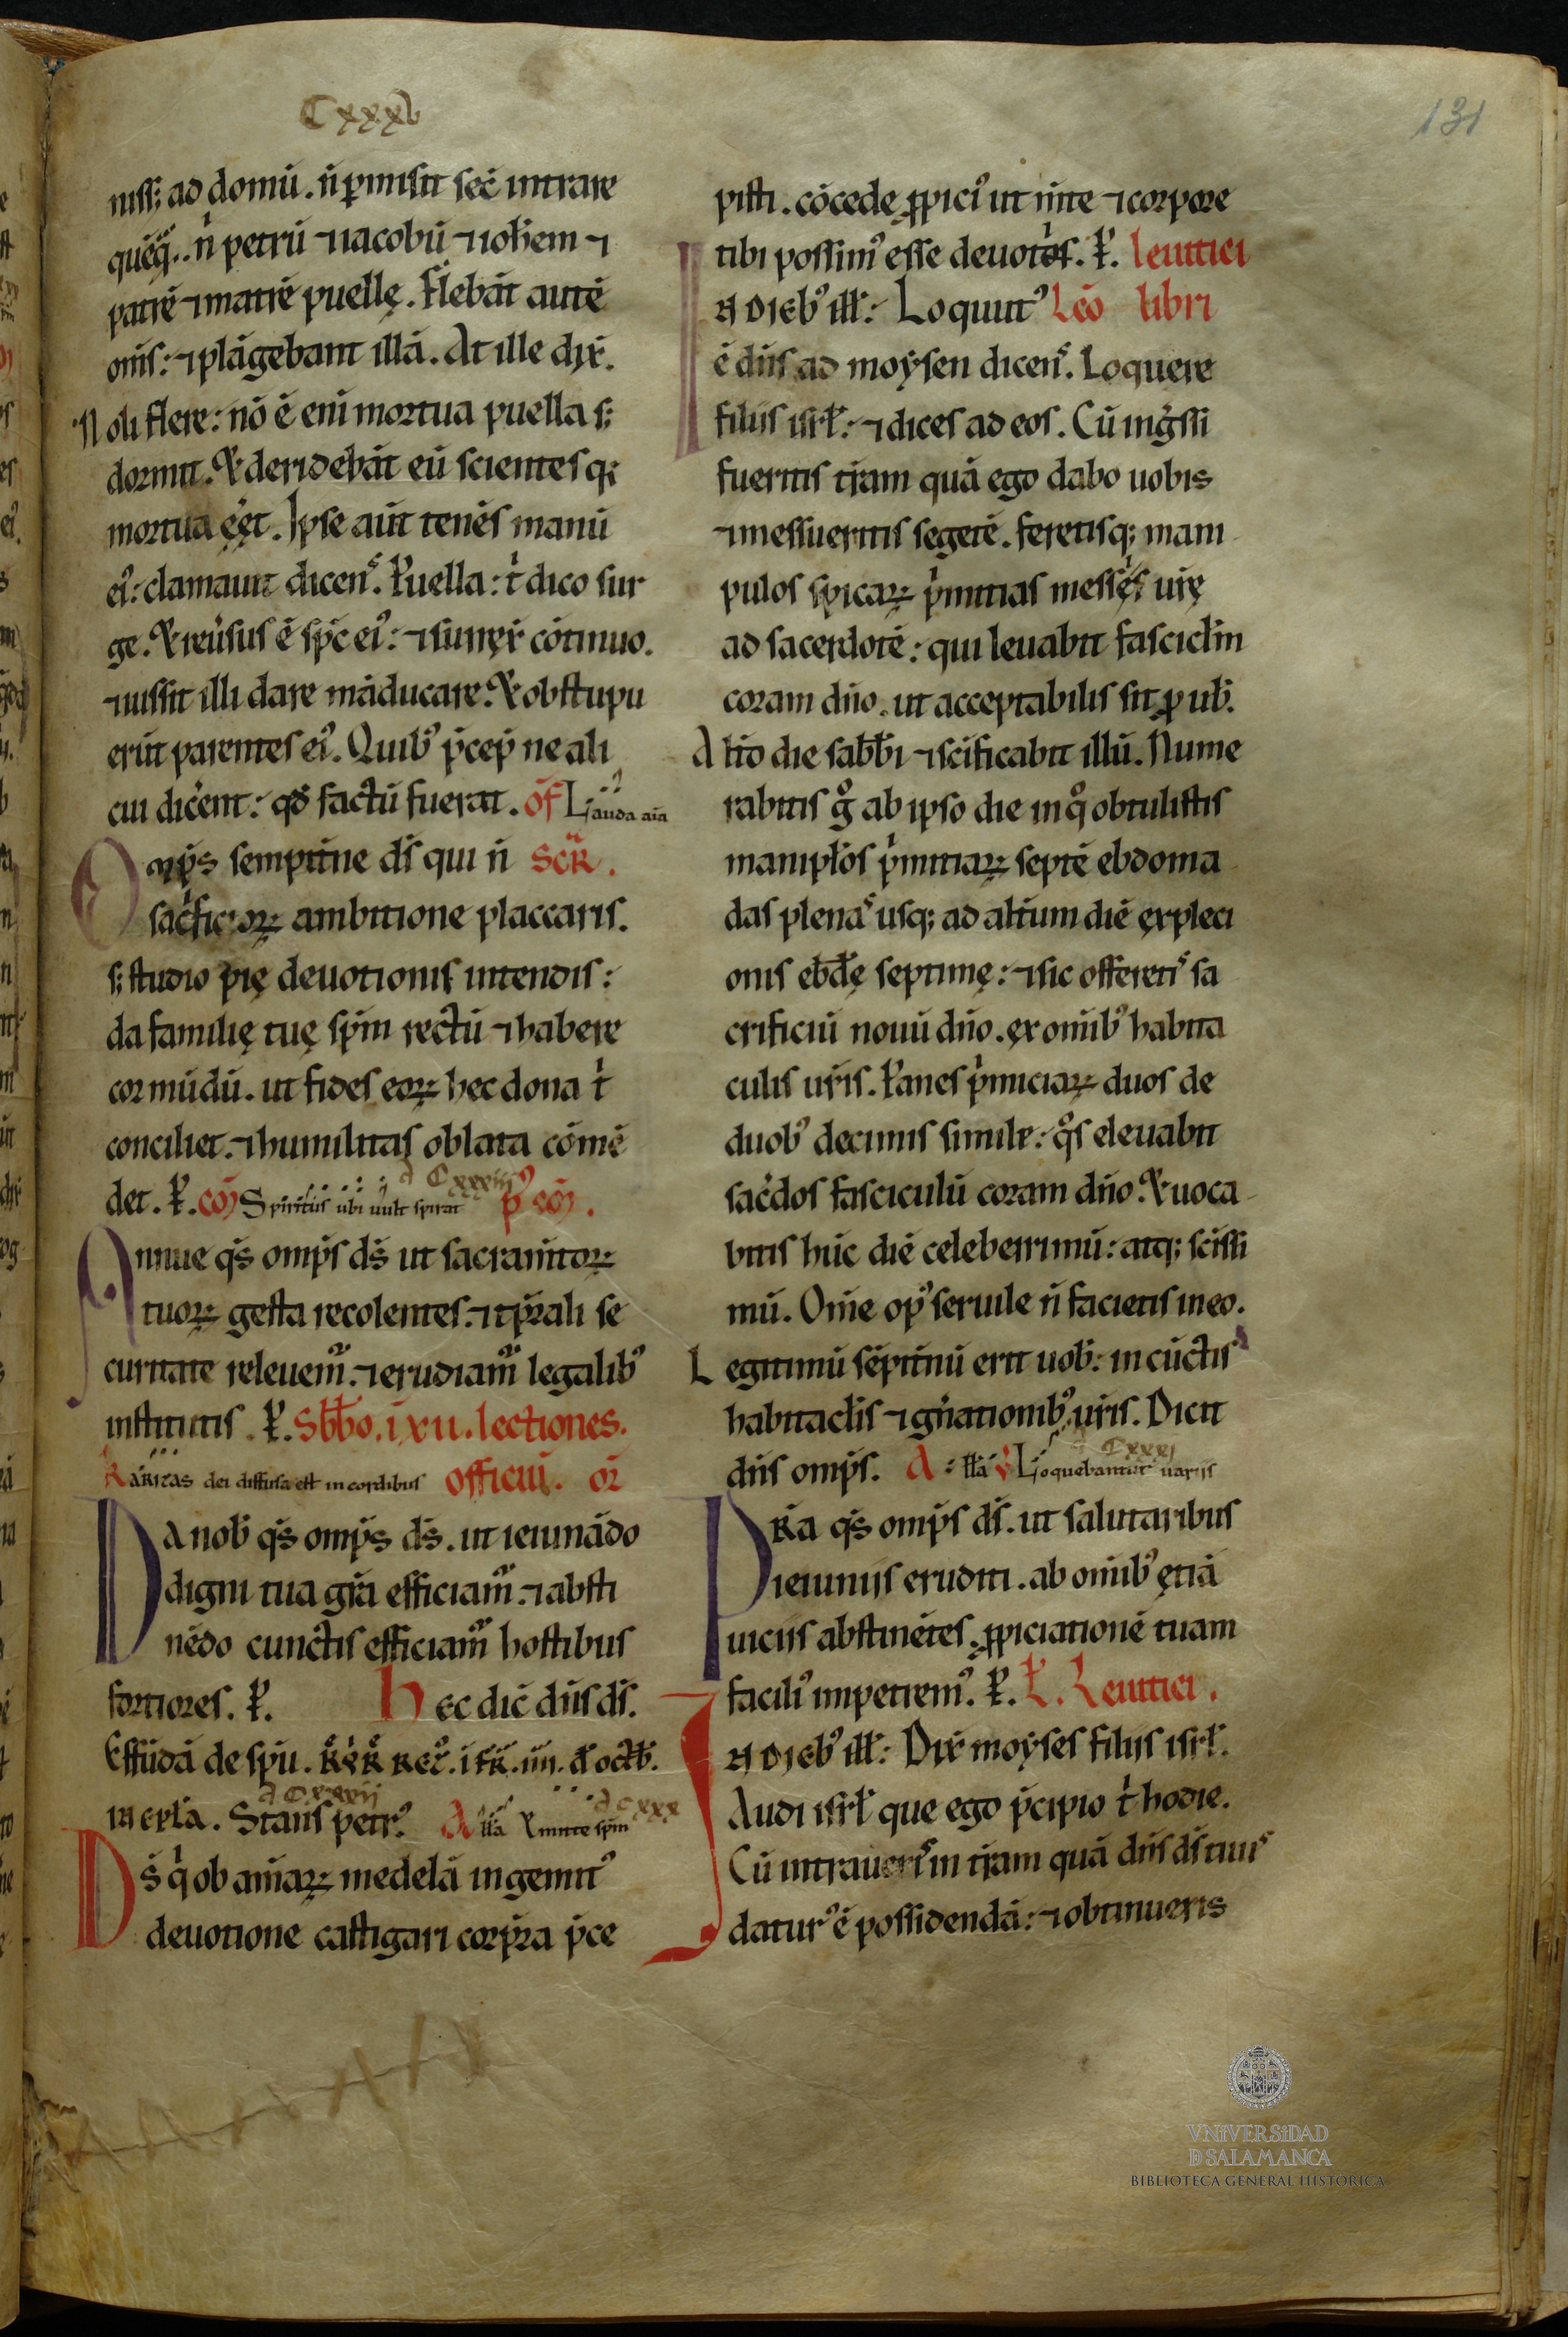 Cxxxv
131
niss; ad domū. n̄ ꝑmisit sec̄ intrare
quēq̄. n̍ petrū ⁊ iacobū ⁊ ioh̄em ⁊
patrē ⁊ matrē puellę. Flebāt autē
om̄s: ⁊ plāgebant illā. At ille dix̄.
Noli flere: nō ē eni mortua puella s;
dormit. Et deridebāt eū scientes q;
mortua eēt. Ipse aūt tenēs manū
ei᾽: clamauit dicens. Puella: t̍ dico sur
ge. Et reūsus ē sp̄c ei᾽: ⁊ surrex̄ cōtinuo.
⁊ iussit illi dare māducare. Et obstupu
erūt parentes ei᾽. Quib᾽ p̄cep̄ ne ali
cui dic̄ent: qd̄ factū fuerat. of̄ Lauda aīa
Omp̄s sempit̄ne ds̄ qui n̄ SCR̄.
sac̍ficioꝝ ambitione placcaris.
s; studio pię deuotionis intendis:
da familię tuę sp̄m rectū ⁊ habere
cor mūdū. ut fides eoꝝ hec dona t̍
conciliet. ⁊ humilitas oblata cōmē
det. P̄. cō Spiritus ubi uult spirat p᾽ cō.
a Cxxxiiii
Annue qs̄ omp̄s ds̄ ut sacram̄toꝝ
tuoꝝ gesta recolentes. ⁊ tp̄rali se
curitate releuem̄. ⁊ erudiam̄ legalib᾽
institutis. P̄. Sb̄bo. i xii. lectiones.
Karitas dei diffusa est in cordibus officiū. or̄
Da nob̄ qs̄ omp̄s ds̄. ut ieiunādo
digni tua gr̄a efficiam̄. ⁊ absti
nēdo cunctis efficiam̄ hostibus
fortiores. P̄. Hec dic̄ dn̄s ds̄.
Effūdā de sp̄u. R̄. i fr̄. iiii. d̄ octb̄.
a Cxxxii
in ep̄la. Stans petr᾽. Al̄la Emitte sp̄m
a cxxx
Ds̄ q̍ ob aīaꝝ medelā ingemit᾽
deuotione castigari corp̄ra p̄ce
pisti. cōcede ꝓpici᾽ ut m̄te ⁊ corpore
tibi possim᾽ esse deuoti. P̄. leuitici
In dieb᾽ ill̄: Loquut᾽ Lēo libri
ē dn̄s ad moẏsen dicens. Loquere
filiis isrl̄: ⁊ dices ad eos. Cū ing̍ssi
fueritis tr̄am quā ego dabo uobis
⁊ messueritis segetē. feretisq; mani
pulos spicaꝝ p̍mitias messis ur̄ę
ad sacerdotē: qui leuabit fascicl̄m
coram dn̄o. ut acceptabilis sit ꝓ uob̄.
Alt̄o die sabb̄i ⁊ sc̄ificabit illū. Nume
rabitis g̊ ab ipso die in q̊ obtulistis
manipl̄os p̍mitiaꝝ septē ebdoma
das plenas usq; ad alt̄um diē expleci
onis ebd̄ę septimę: ⁊ sic offeretis sa
crificiū nouū dn̄o. ex omīb᾽ habita
culis ur̄is. Panes p̍miciaꝝ duos de
duob᾽ decimis simile: q̊s eleuabit
sac̄dos fasciculū coram dn̄o. Et uoca
bitis hūc diē celeberrimū: atq; sc̄issi
mū. Om̄e op᾽ seruile n̄ facietis in eo.
Legitimū sēpit̄nū erit uob̄: in cūctis
habitaclis ⁊ gn̄ationib᾽ ur̄is. Dicit
dn̄s omp̄s. Al̄la V̄ Loquebantur uariis
a Cxxxi
Pra qs̄ omp̄s ds̄. ut salutaribus
ieiuniis eruditi. ab omib᾽ ętiā
uiciis abstinētes. ꝓpiciationē tuam
facili᾽ impetrem᾽. P̄. L̄. Leuitici.
In dieb᾽ ill̄: Dix̄ moẏses filiis isrl̄.
Audi isrl̄ que ego p̄cipio t̍ hodie.
Cū intraueris in tr̄am quā dn̄s ds̄ tuus
datur᾽ ē possidendā: ⁊ obtinueris
VNIVERSIDAD
D SALAMANCA
BIBLIOTECA GENERAL HISTÓRICA